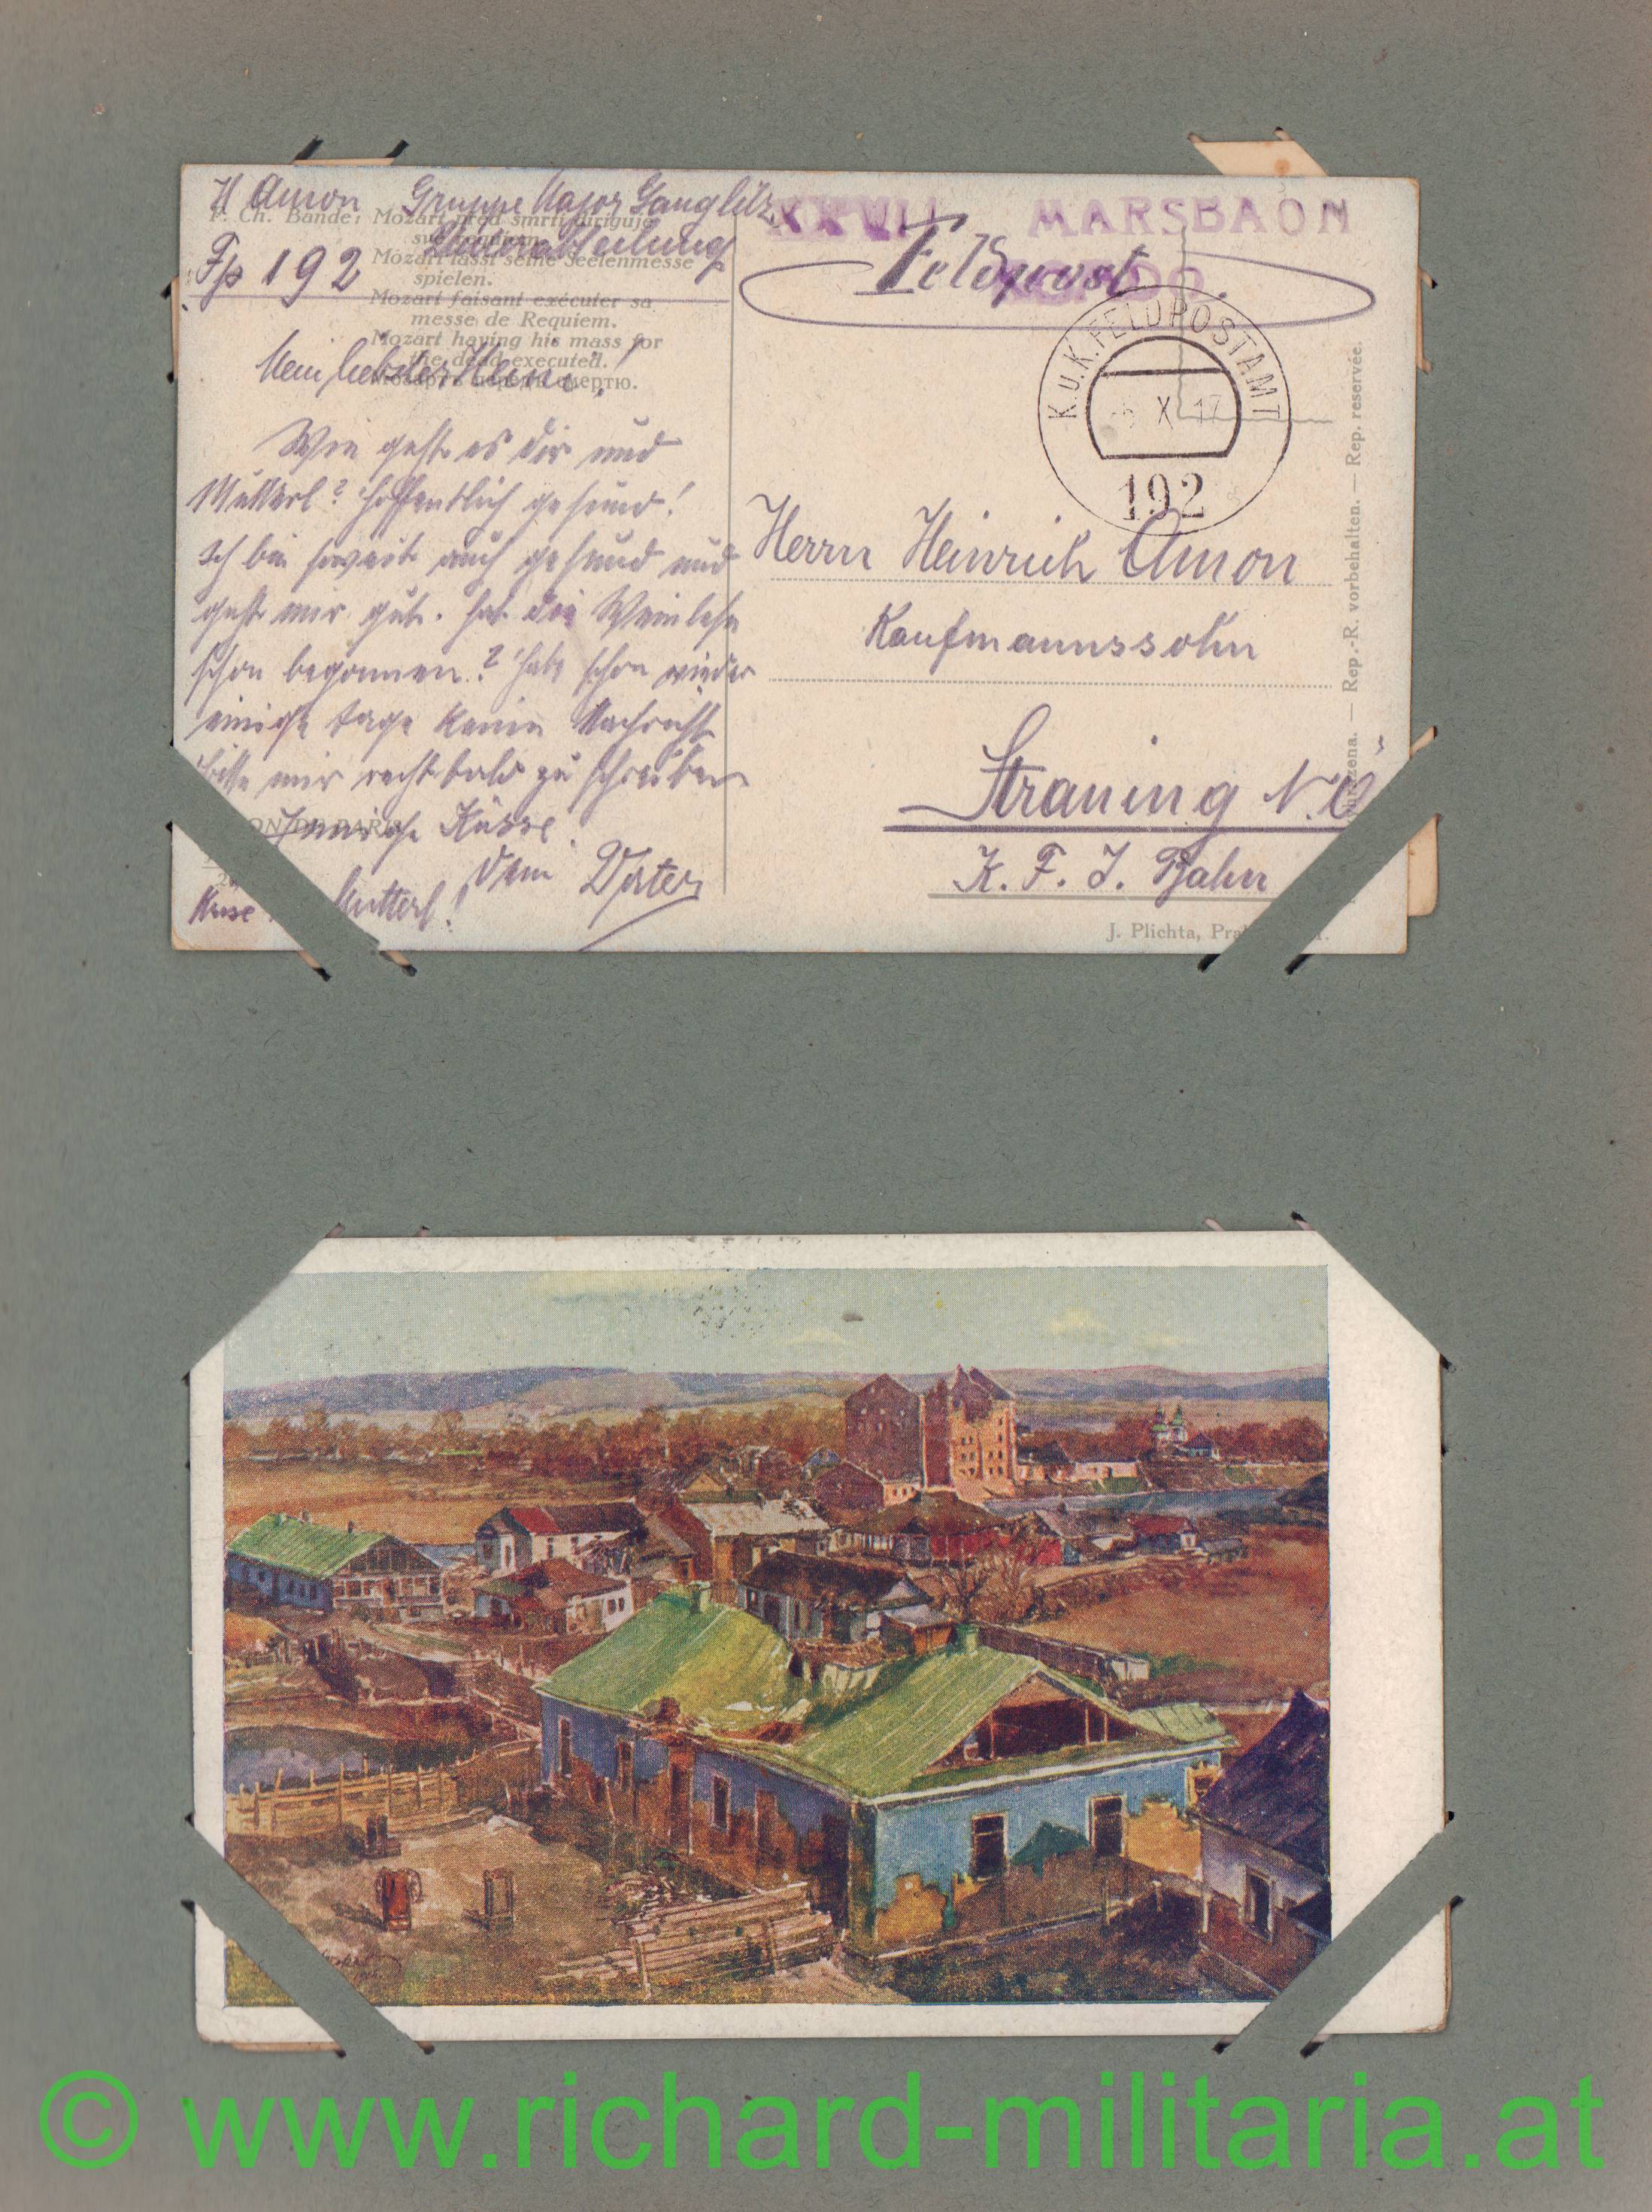 H Amon Gruppe Major
Fp 192
F. Ch. Bande: Mozart před smrtí diriguje
své requiem.
Mozart lässt seine Seelenmesse
spielen.
Mozart faisant exécuter sa
messe de Requiem.
Mozart having his mass for
the dead executed.
Моцартъ передъ смертю.
Mein liebster Heini!
Wie geht es dir und
Mutterl? Hoffentlich gesund!
Ich bin soweit auch gesund und
geht mir gut. Hat die Weinlese
schon begonnen? Habe schon wieder
einige Tage keine Nachricht
bitte mir recht bald zu schreiben
Innige Küsse
dein Vater
Mutterl!
XXVII MARSBAON
Feldpost.
K.u.K. FELDPOSTAMT
X 17
192
Herrn Heinrich Amon
Kaufmannssohn
Straning N.Ö
K. F. J. Bahn
J. Plichta,
Rep.-R. vorbehalten. — Rep. reservée.
© www.richard-militaria.at